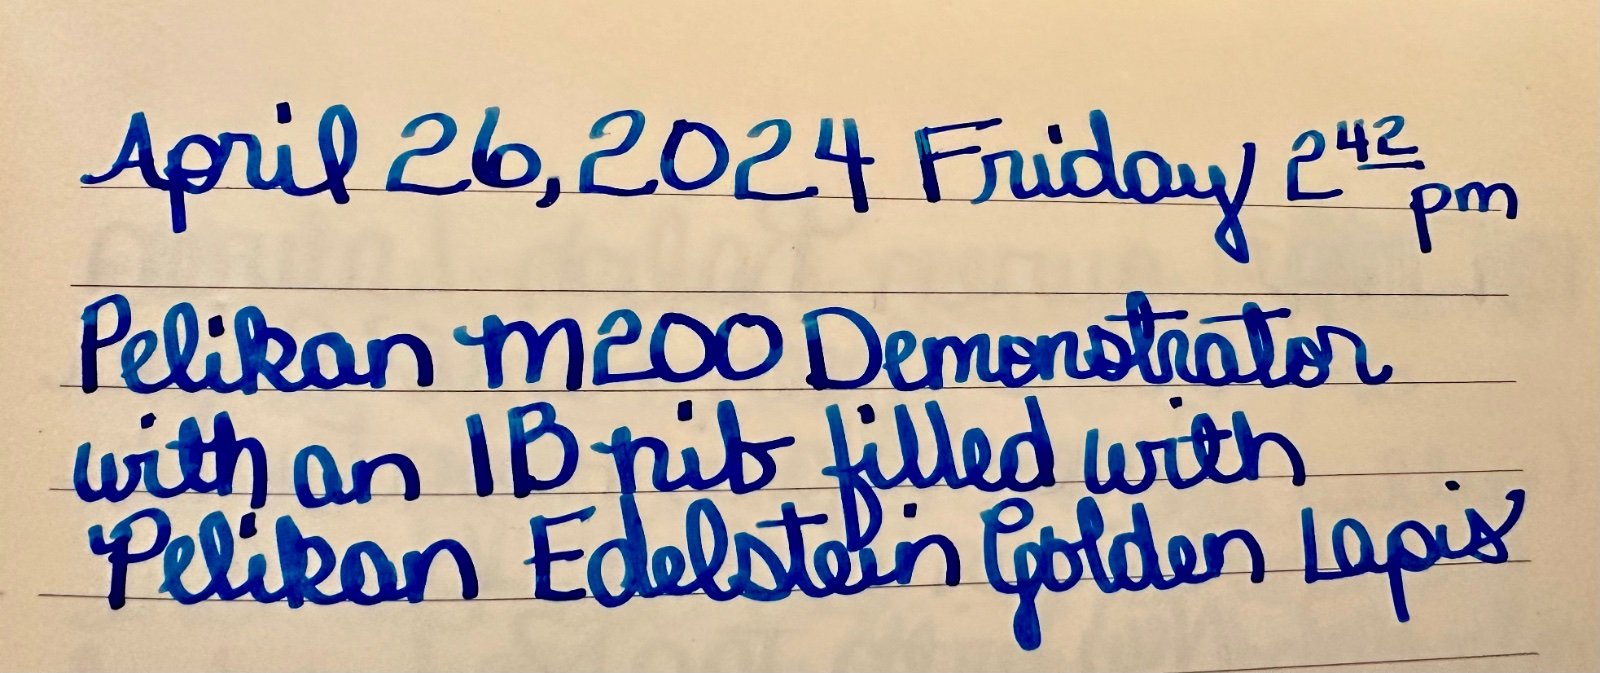 April 26, 2024 Friday 2⁴² pm
Pelikan M200 Demonstrator
with an IB nib filled with
Pelikan Edelstein Golden Lapis